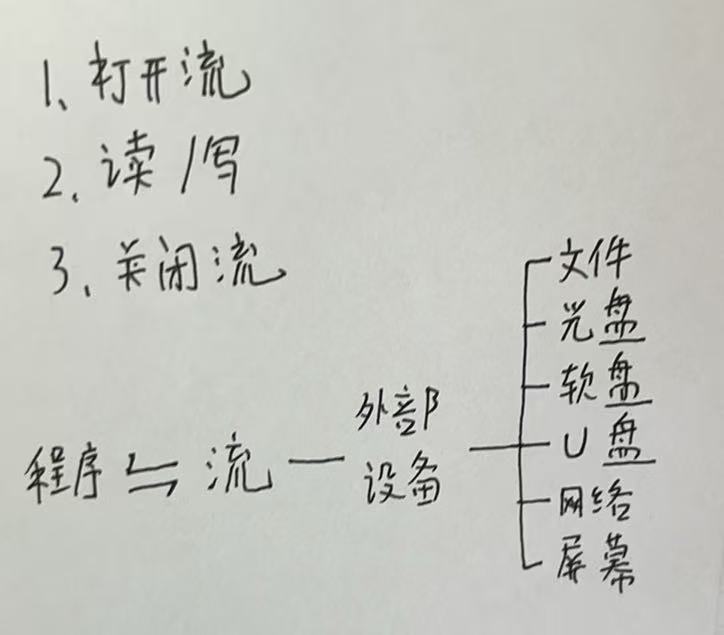 1、打开流
2、读/写
3、关闭流
程序⇆流—外部设备
文件
光盘
软盘
U盘
网络
屏幕